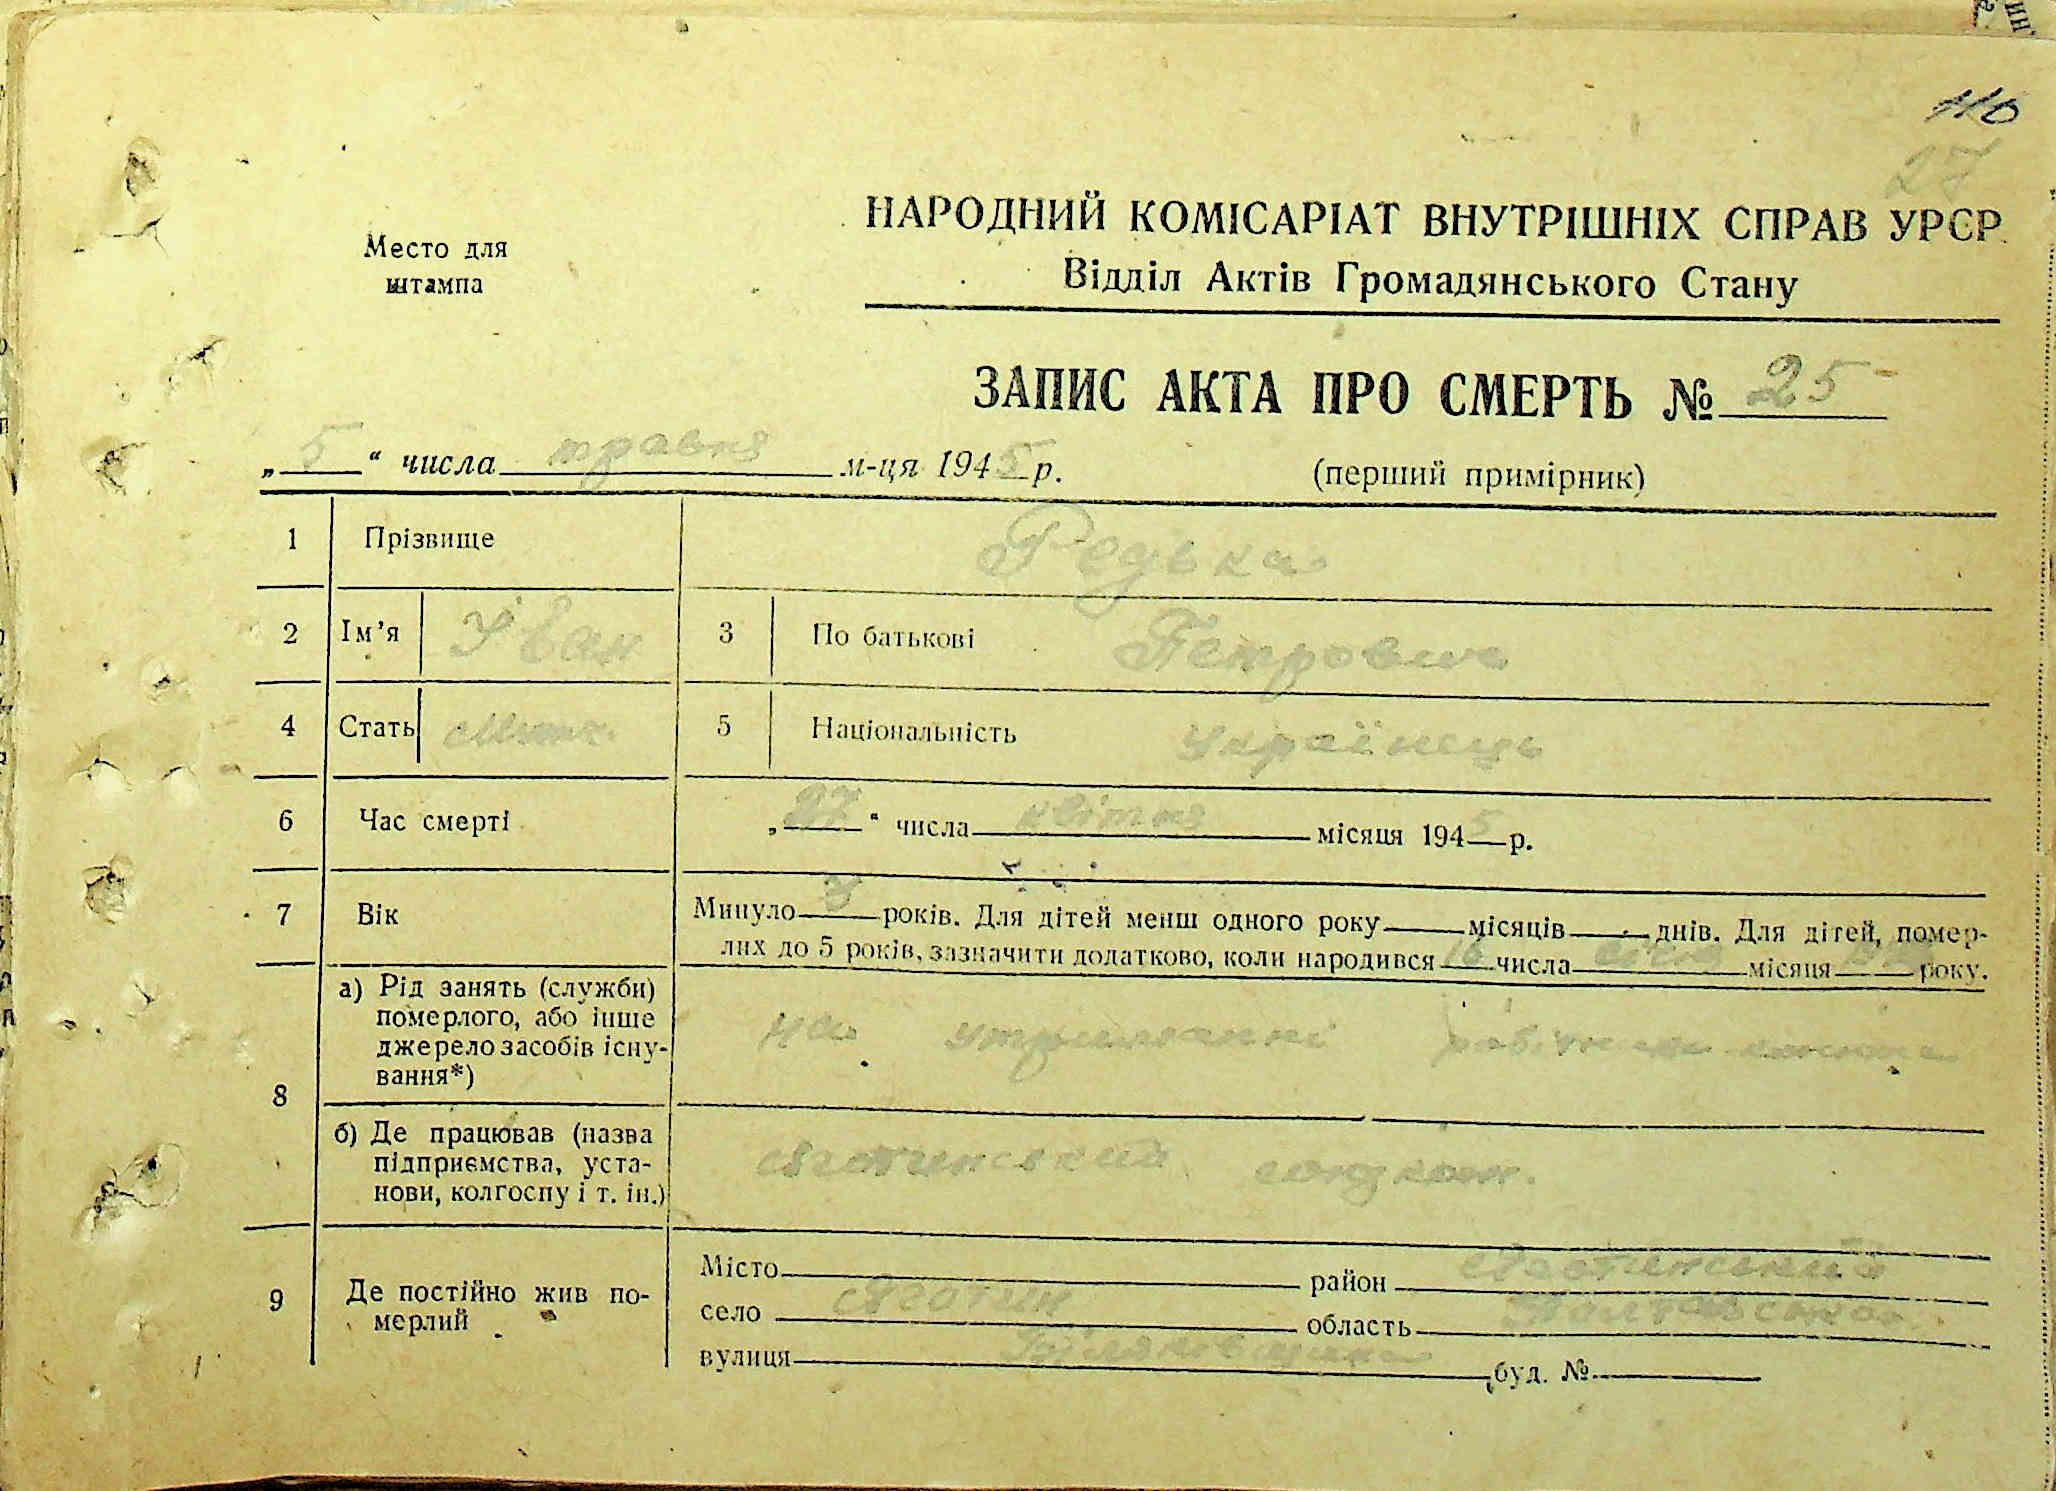 116
27
Место для
штампа
НАРОДНИЙ КОМІСАРІАТ ВНУТРІШНІХ СПРАВ УРСР
Відділ Актів Громадянського Стану
ЗАПИС АКТА ПРО СМЕРТЬ № 25
„ 5 “ числа травня м-ця 1945 р. (перший примірник)
1 Прізвище Редька
2 Ім’я Іван 3 По батькові Петрович
4 Стать 5 Національність Українець
6 Час смерті „ 27 “ числа квітня місяця 1945 р.
7 Вік Минуло років. Для дітей менш одного року місяців днів. Для дітей, помер-
лих до 5 років, зазначити додатково, коли народився 16 числа місяця року.
8 а) Рід занять (служби)
померлого, або інше
джерело засобів існу-
вання*) на утриманні
б) Де працював (назва
підприємства, уста-
нови, колгоспу і т. ін.)
9 Де постійно жив по-
мерлий
Місто район
село область Полтавська
вулиця буд. №